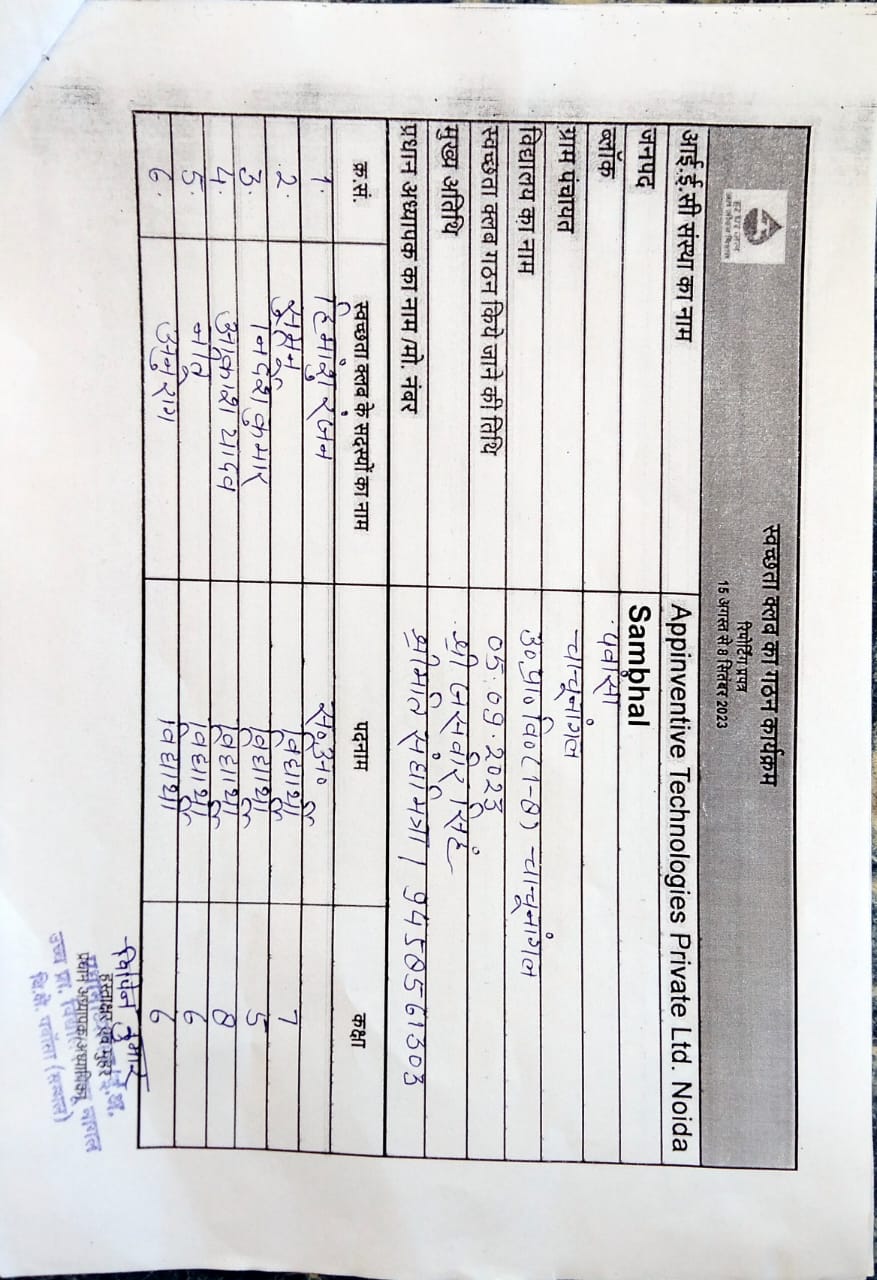 हर घर जल
जल जीवन मिशन
स्वच्छता क्लब का गठन कार्यक्रम
रिपोर्टिंग प्रपत्र
15 अगस्त से 8 सितंबर 2023
आई.ई.सी संस्था का नाम Appinventive Technologies Private Ltd. Noida
जनपद Sambhal
ब्लॉक पवांसा
ग्राम पंचायत
विद्यालय का नाम उ०प्रा० वि० (1-8)
स्वच्छता क्लब गठन किये जाने की तिथि 05.09.2023
मुख्य अतिथि श्री जसवीर सिंह
प्रधान अध्यापक का नाम /मो. नंबर श्रीमति 9458561303
क्र.सं. स्वच्छता क्लब के सदस्यों का नाम पदनाम कक्षा
1. हिमांशु रंजन स०अ०
2. विद्यार्थी 7
3. कुमार विद्यार्थी 5
4. यादव विद्यार्थी 8
5. विद्यार्थी 6
6. अनुराग विद्यार्थी 6
विपिन कुमार
हस्ताक्षर एवं मुहर
प्रधान अध्यापक/अध्यापिका
वि.क्षे. पवांसा (सम्भल)